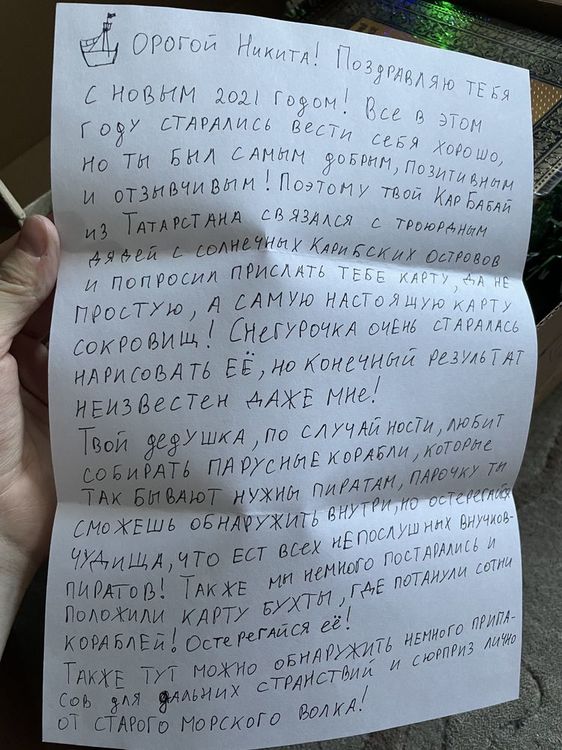 ОРОГОЙ НИКИТА! ПОЗДРАВЛЯЮ ТЕБЯ
С НОВЫМ 2021 ГОДОМ! ВСЕ В ЭТОМ
ГОДУ СТАРАЛИСЬ ВЕСТИ СЕБЯ ХОРОШО,
НО ТЫ БЫЛ САМЫМ ДОБРЫМ, ПОЗИТИВНЫМ
И ОТЗЫВЧИВЫМ! ПОЭТОМУ ТВОЙ КАР БАБАЙ
ИЗ ТАТАРСТАНА СВЯЗАЛСЯ С ТРОЮРДНЫМ
ДЯДЕЙ С СОЛНЕЧНЫХ КАРИБСКИХ ОСТРОВОВ
И ПОПРОСИЛ ПРИСЛАТЬ ТЕБЕ КАРТУ, ДА НЕ
ПРОСТУЮ, А САМУЮ НАСТОЯЩУЮ КАРТУ
СОКРОВИЩ! СНЕГУРОЧКА ОЧЕНЬ СТАРАЛАСЬ
НАРИСОВАТЬ ЕЁ, НО КОНЕЧНЫЙ РЕЗУЛЬТАТ
НЕИЗВЕСТЕН ДАЖЕ МНЕ!
ТВОЙ ДЕДУШКА, ПО СЛУЧАЙНОСТИ, ЛЮБИТ
СОБИРАТЬ ПАРУСНЫЕ КОРАБЛИ, КОТОРЫЕ
ТАК БЫВАЮТ НУЖНЫ ПИРАТАМ, ПАРОЧКУ ТЫ
СМОЖЕШЬ ОБНАРУЖИТЬ ВНУТРИ, НО ОСТЕРЕГАЙСЯ
ЧУДИЩА, ЧТО ЕСТ ВСЕХ НЕПОСЛУШНЫХ ВНУЧКОВ-
ПИРАТОВ! ТАКЖЕ МЫ НЕМНОГО ПОСТАРАЛИСЬ И
ПОЛОЖИЛИ КАРТУ БУХТЫ, ГДЕ ПОТАНУЛИ СОТНИ
КОРАБЛЕЙ! ОСТЕРЕГАЙСЯ ЕЁ!
ТАКЖЕ ТУТ МОЖНО ОБНАРУЖИТЬ НЕМНОГО ПРИПА-
СОВ ДЛЯ ДАЛЬНИХ СТРАНСТВИЙ И СЮРПРИЗ ЛИЧНО
ОТ СТАРОГО МОРСКОГО ВОЛКА!